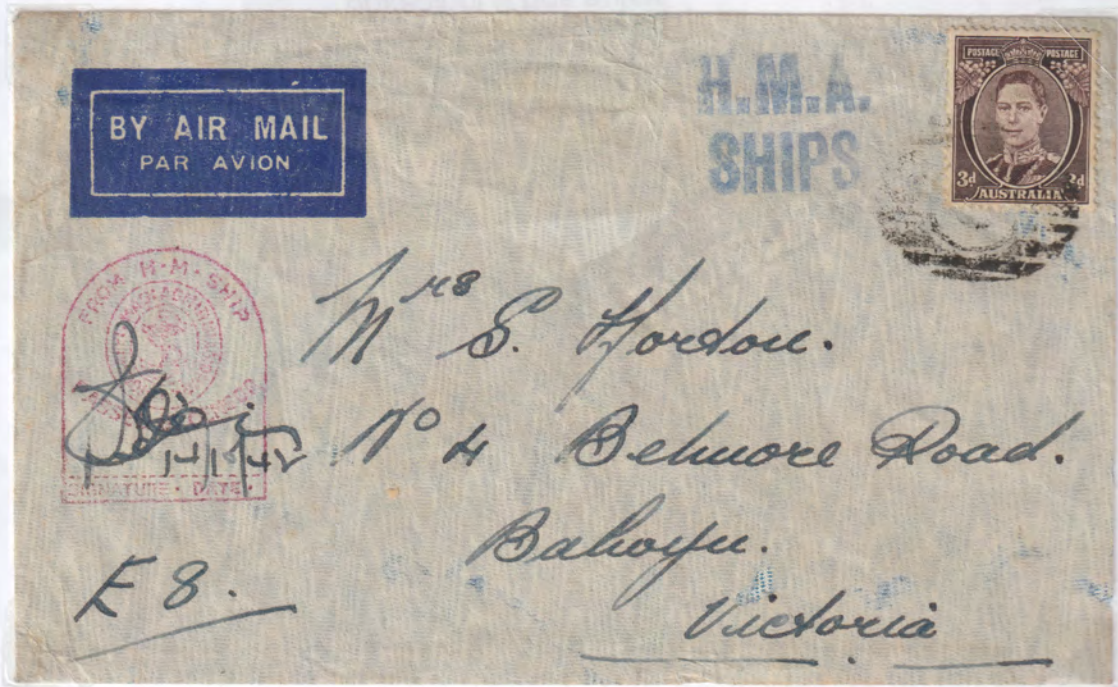 BY AIR MAIL
PAR AVION
H.M.A.
SHIPS
POSTAGE POSTAGE
3d
AUSTRALIA
FROM H·M·SHIP
SIGNATURE · DATE ·
Mrs S. Horton.
No 4 Belmore Road.
Balwyn.
Victoria
E 8.